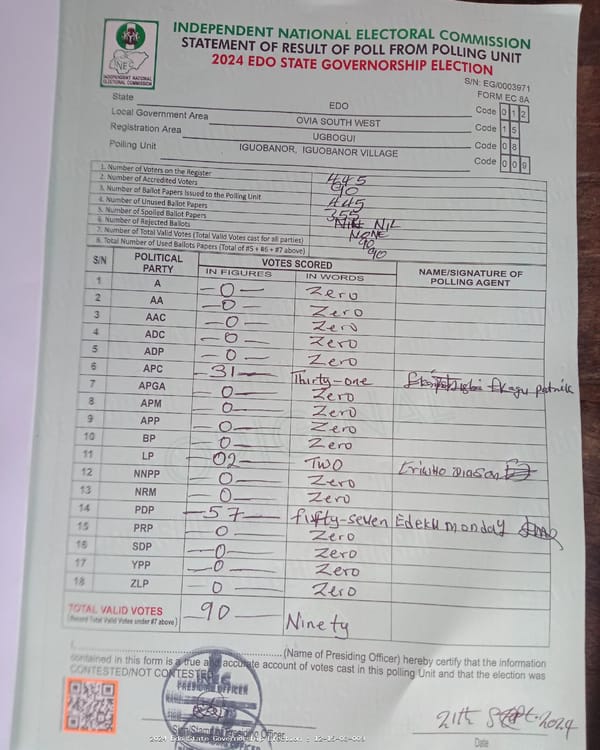 INDEPENDENT NATIONAL ELECTORAL COMMISSION
STATEMENT OF RESULT OF POLL FROM POLLING UNIT
2024 EDO STATE GOVERNORSHIP ELECTION
INEC
INDEPENDENT NATIONAL ELECTORAL COMMISSION
S/N: EG/0003971
FORM EC 8A
State EDO Code 0 1 2
Local Government Area OVIA SOUTH WEST Code 1 5
Registration Area UGBOGUI Code 0 8
Polling Unit IGUOBANOR, IGUOBANOR VILLAGE Code 0 0 9
1. Number of Voters on the Register 445
2. Number of Accredited Voters 90
3. Number of Ballot Papers Issued to the Polling Unit 445
4. Number of Unused Ballot Papers 355
5. Number of Spoiled Ballot Papers NIL
6. Number of Rejected Ballots NONE
7. Number of Total Valid Votes (Total Valid Votes cast for all parties) 90
8. Total Number of Used Ballots Papers (Total of #5 + #6 + #7 above) 90
S/N POLITICAL PARTY VOTES SCORED NAME/SIGNATURE OF POLLING AGENT
IN FIGURES IN WORDS
1 A —0— Zero
2 AA —0— Zero
3 AAC —0— Zero
4 ADC —0— Zero
5 ADP —0— Zero
6 APC —31— Thirty-one
7 APGA 0— Zero
8 APM —0— Zero
9 APP —0— Zero
10 BP —0— Zero
11 LP —02— TWO
12 NNPP —0— Zero
13 NRM —0— Zero
14 PDP —57— fifty-seven Edeku monday
15 PRP 0— Zero
16 SDP —0— Zero
17 YPP —0— Zero
18 ZLP 0— Zero
TOTAL VALID VOTES —90— Ninety
(Record Total Valid Votes under #7 above)
I, (Name of Presiding Officer) hereby certify that the information
contained in this form is a true and accurate account of votes cast in this polling Unit and that the election was
CONTESTED/NOT CONTESTED
PRESIDING OFFICER
21th Sept. 2024
Date
2024 Edo State Governorship Election